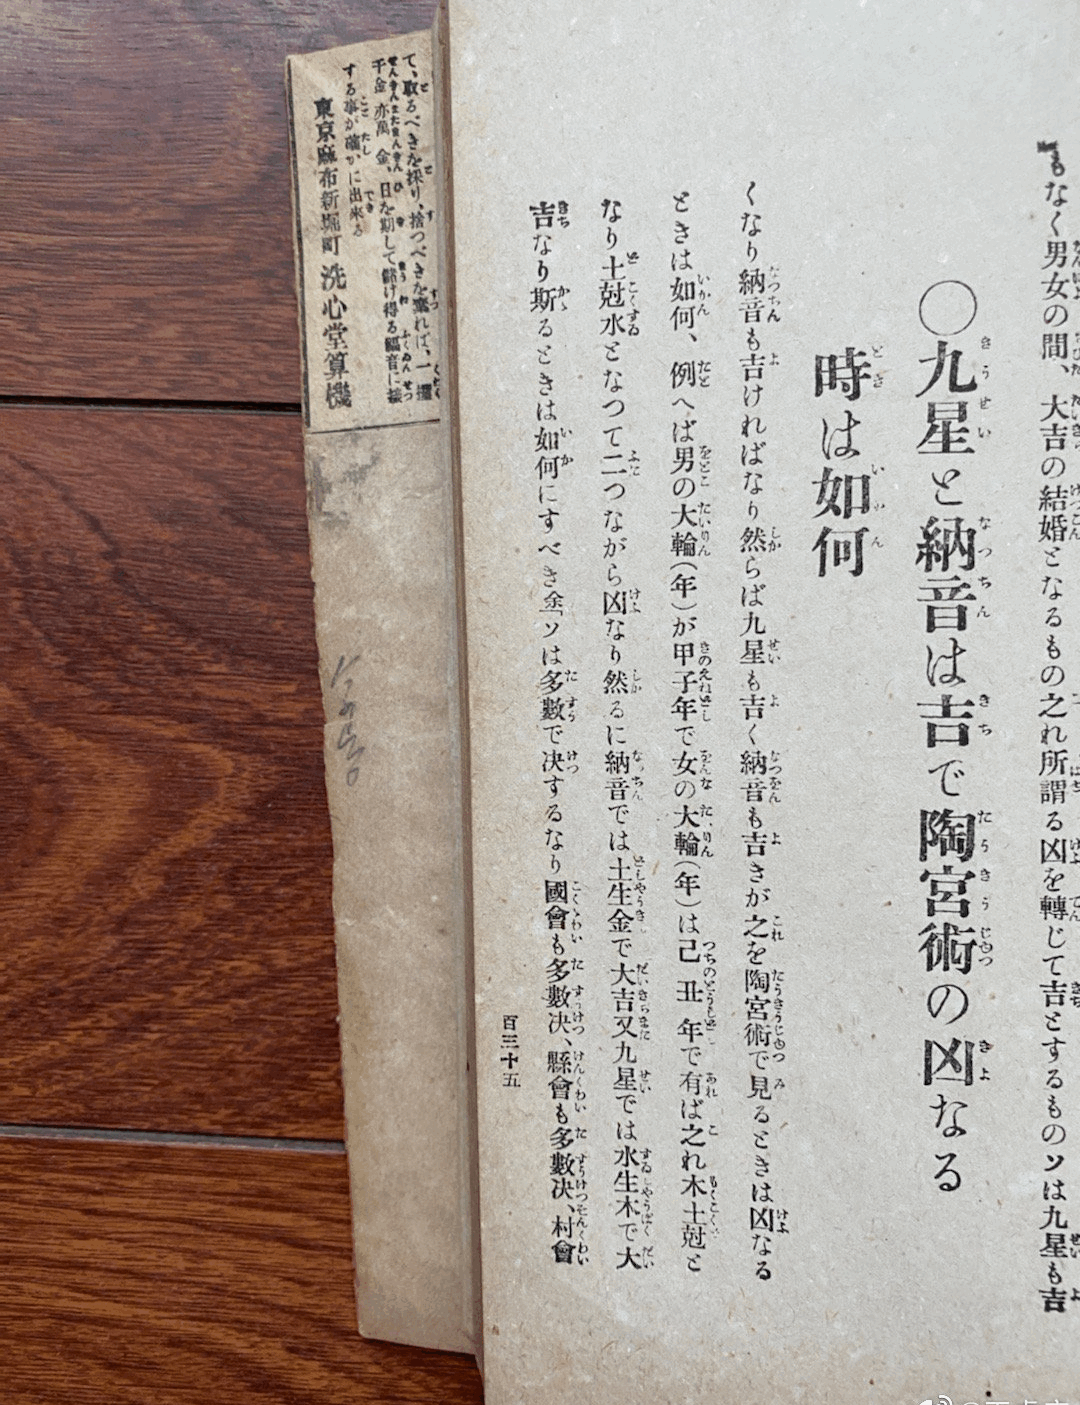 もなく男女の間、大吉の結婚となるもの之れ所謂る凶を轉じて吉とするものソは九星も吉
〇九星と納音は吉で陶宮術の凶なる
時は如何
くなり納音も吉ければなり然らば九星も吉く納音も吉きが之を陶宮術で見るときは凶なる
ときは如何、例へば男の大輪(年)が甲子年で女の大輪(年)は己丑年で有ば之れ木土尅と
なり土尅水となつて二つながら凶なり然るに納音では土生金で大吉又九星では水生木で大
吉なり斯るときは如何にすべき余「ソは多數で決するなり國會も多數決、縣會も多數決、村會
百三十五
て、取るべきを採り、捨つべきを棄れば、一攫
千金亦萬金、日を期して儲け得る福音に接
する事が確かに出來る
東京麻布新堀町 洗心堂算機